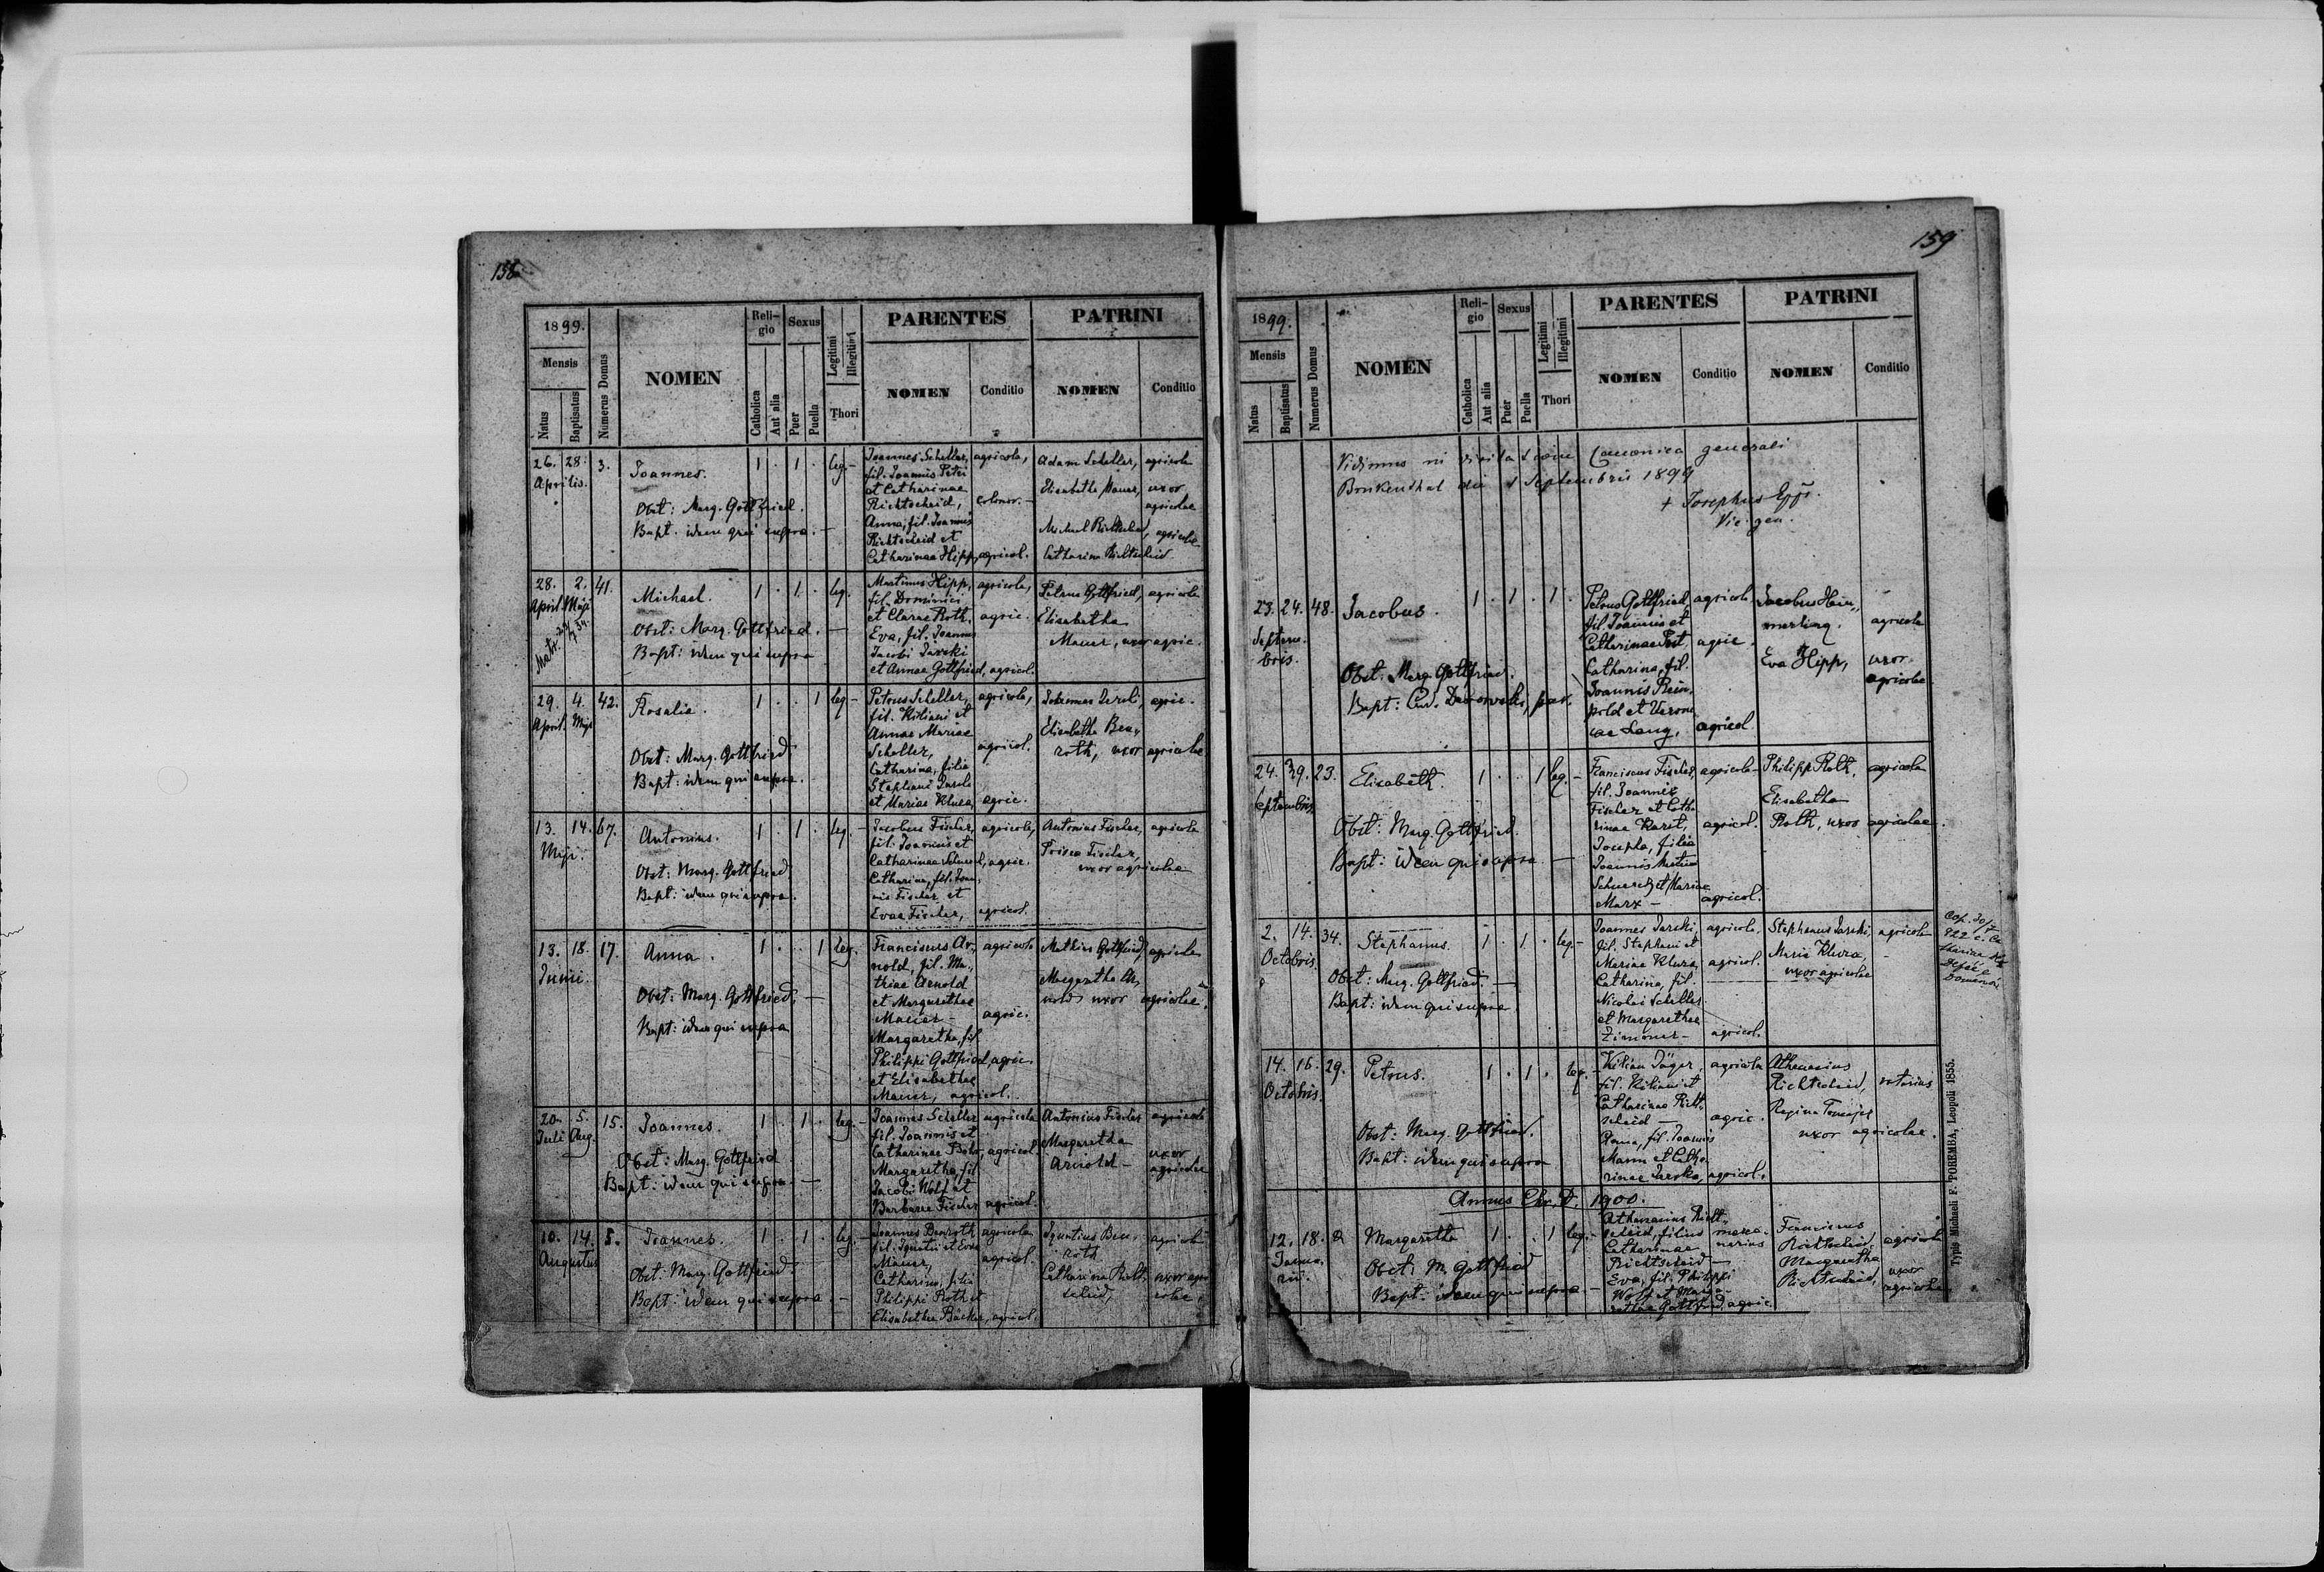 158
1899.
Mensis
Natus
Baptisatus
Numerus Domus
NOMEN
Religio
Catholica
Aut alia
Sexus
Puer
Puella
Legitimi
Illegitimi
Thori
PARENTES
NOMEN
Conditio
PATRINI
NOMEN
Conditio
26. 28. 3. Joannes. 1 . 1 . leg.-
Aprilis.
Obst: Marg. Gottfried.
Bapt. idem qui supra. —
Joannes Scheller, agricola,
fil. Joannis Petri
et Catharinae
Richtscheid, colonor. —
Anna, fil. Joannis
Richtscheid et
Catharinae Hipp, agricol.
Adam Scheller, agricola
Elisabetha Mauer, uxor
agricolae
Michael Richtscheid, agricola
Catharina Richtscheid
28. 2. 41. Michael. 1 . 1 . leg.
April. Maji
Obst: Marg. Gottfried. —
Bapt: idem qui supra
Martinus Hipp, agricola,
fil. Dominici
et Clarae Roth, agric.
Eva, fil. Joannis
Jacobi Jarski
et Annae Gottfried, agricol.
Petrus Gottfried, agricola
Elisabetha
Mauer, uxor agric.
29. 4. 42. Rosalia. 1 . . 1 leg-
April. Maji
Obst: Marg. Gottfried
Bapt: idem qui supra.
Petrus Scheller, agricola,
fil. Kiliani et
Annae Mariae
Scheller, agricol.
Catharina, filia
Stephani Jarski
et Mariae Kluza, agric.
agric.
Elisabetha Ben,
roth, uxor agricolae
13. 14. 67. Antonius. 1 . 1 . leg.-
Maji.
Obst: Marg. Gottfried
Bapt: idem qui supra.
Jacobus Fischer, agricola,
fil. Joannis et
Catharinae agric.
Catharina, fil. Joan,
nis Fischer et
Evae Fischer, agricol.
Antonius Fischer, agricola
Prisca Fischer,
uxor agricolae
13. 18. 17. Anna. 1 . . 1 leg.
Junii.
Obst: Marg. Gottfried, —
Bapt: idem qui supra
Franciscus Ar, agricola
nold, fil. Ma,
thiae Arnold
et Margarethae
Mauer - agric.
Margaretha, fil.
Philippi Gottfried, agric.
et Elisabethae
Mauer, agricol.
Mathias Gottfried, agricola
Margaretha Ar,
nold, uxor agricolae
20. 5. 15. Joannes. 1 . 1 . leg.-
Juli Aug.
Obst: Marg. Gottfried
Bapt: idem qui supra. —
Joannes Scheller agricola
fil. Joannis et
Catharinae agricol.
Margaretha, fil.
Jacobi Wolf et
Barbarae Fischer agricol.
Antonius Fischer agricola
Margaretha
Arnold - uxor
agricolae
10. 14. 8. Joannes. 1 . 1 . leg.-
Augustus
Obst: Marg. Gottfried.
Bapt: idem qui supra. -
Joannes Benroth agricola
fil. Ignatii et Evae
Mauer, agricol.
Catharina, filia
Philippi Roth et
Elisabethae Bäcker, agricol.
Ignatius Ben, agricola
roth
Catharina Richt, uxor agri
scheid, colae.
159
1899.
Mensis
Natus
Baptisatus
Numerus Domus
NOMEN
Religio
Catholica
Aut alia
Sexus
Puer
Puella
Legitimi
Illegitimi
Thori
PARENTES
NOMEN
Conditio
PATRINI
NOMEN
Conditio
Vidimus in visitatione Canonica generali
die 1 Septembris 1899
+ Josephus Eppi.
Vic. gen.
23. 24. 48. Jacobus. 1 . 1 . 1.
Septem-
bris.
Obst: Marg. Gottfried.
Petrus Gottfried, agricola
fil. Joannis et
Catharinae agric.
Catharina, fil.
Joannis Rein,
pold et Veroni
cae Lang, agricol.
Jacobus Hem,
merling. agricola
Eva Hipp, uxor
agricolae
24. 29. 23. Elisabeth. 1 . . 1 leg.-
Septembris
Obst: Marg. Gottfried.
Bapt: idem qui supra. —
Franciscus Fischer, agricola
fil. Joannis
Fischer et Catha
rinae agricol.
Josepha, filia
Joannis
et Mariae
Marx - agricol.
Philipp Roth, agricola
Elisabetha
Roth, uxor agricolae.
2. 14. 34. Stephanus. 1 . 1 . leg.-
Octobris
Obst: Marg. Gottfried. —
Bapt: idem qui supra
Joannes Jarski, agricola.
fil. Stephani et
Mariae Kluza, agricol.
Catharina, fil.
Nicolai Scheller
et Margarethae
Zimmer - agricol.
Stephanus Jarski, agricola
Maria Kluza, -
uxor agricolae
14. 16. 29. Petrus. 1 . 1 . leg.-
Octobris.
Obst: Marg. Gottfried.
Bapt: idem qui supra
Kilian Jäger, agricola
fil. Kiliani et
Catharinae Richt,
scheid — agric.
Anna, fil. Joannis
Mann et Catha
rinae Jarska, agricol.
Athanasius
Richtscheid,
Regina
uxor agricolae.
Annus Chr. D. 1900.
12. 18. 2 Margaretha 1 . . 1 leg.-
Janua,
rii.
Obst: M. Gottfried
Bapt: idem qui supra -
Athanasius Richt,
scheid, filius
Catharinae
Richtscheid —
Eva, fil. Philippi
Wolf et Marga-
rethae Gottfried, agric.
Franciscus
Richtscheid, agricola
Margaretha
Richtscheid, uxor
agricolae
Typis Michaeli F. POREMBA, Leopoli 1855.